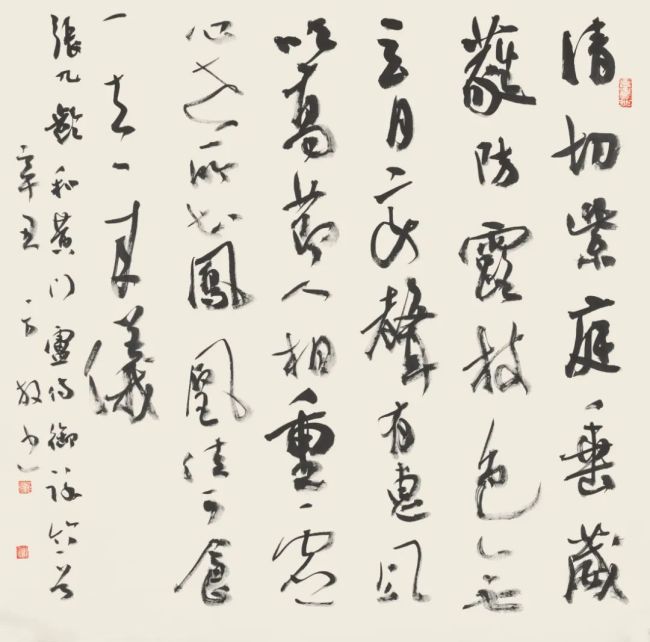 清切紫庭垂葳
蕤防露枝色無
玄月變聲有惠風
吹高節人相重虛
心世所知鳳凰佳可食
一去一来儀
張九齡和黄門盧侍御詠竹
辛丑